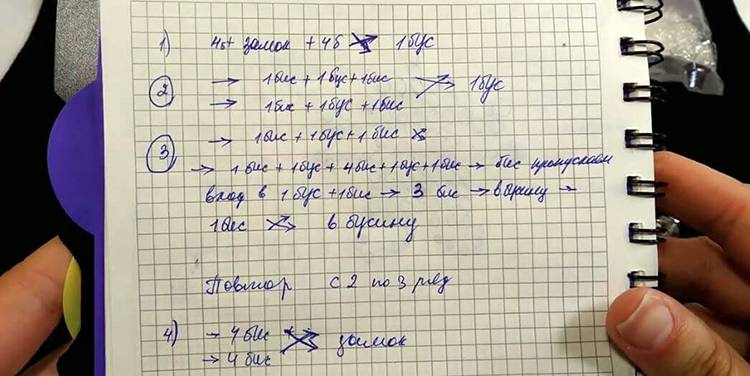 1) 4б+ замок + 4б ⤨ 1бус
2 → 1бис + 1бус + 1бис ⤨ 1бус
→ 1бис + 1бус + 1бис
3 → 1бис + 1бус + 1бис
→ 1бис + 1бус + 4бис + 1бус + 1бис → бис пропускаем
вход в 1бус + 1бис → 3 бис → в бусину →
1бис ⤨ в бусину
Повтор с 2 по 3 ряд
4) → 4бис ⤨ замок
→ 4бис